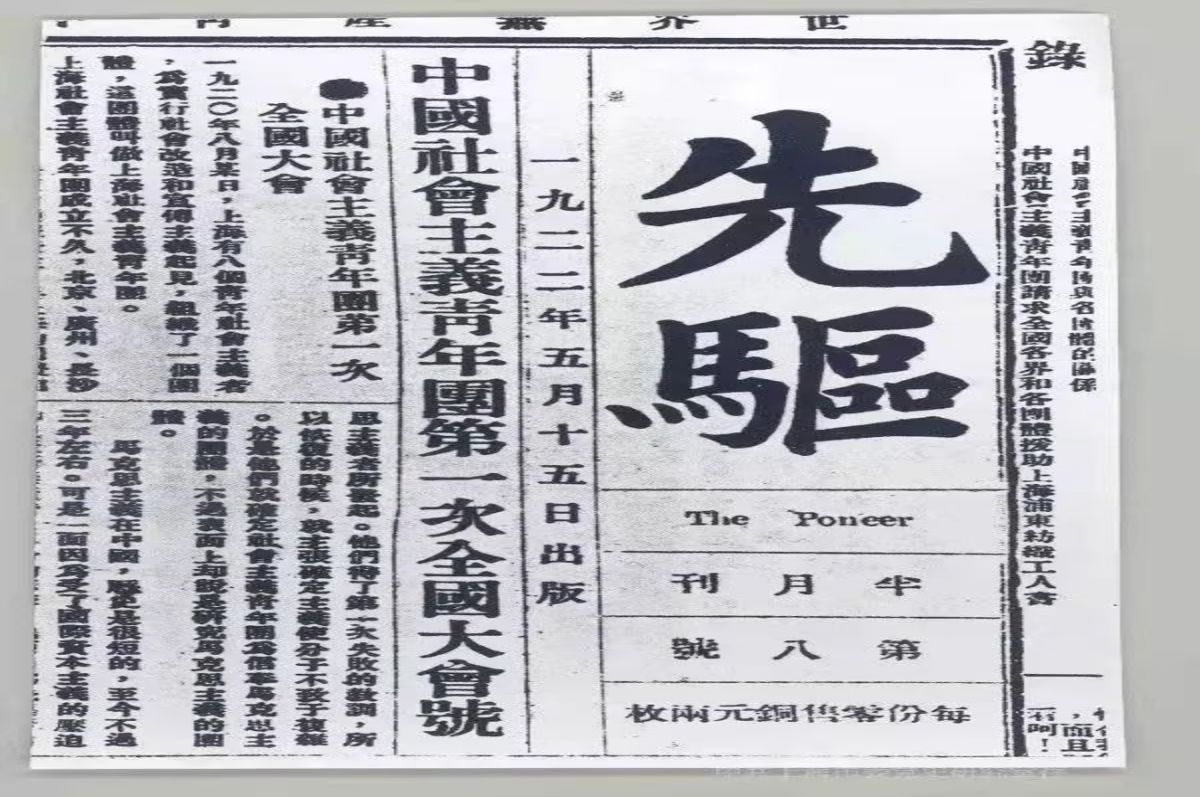 世界無產
錄
中國社會主義青年團與各團體的關係
中國社會主義青年團請求全國各界和各團體援助上海浦東紡織工人會
，而且
呵！
先驅
The Poneer
半月刊
第八號
每份零售銅元兩枚
一九二二年五月十五日出版
中國社會主義青年團第一次全國大會號
●中國社會主義青年團第一次
全國大會
一九二〇年八月某日，上海有八個青年社會主義者
，為實行社會改造和宣傳主義起見，組織了一個團
體，這團體叫做上海社會主義青年團。
上海社會主義青年團成立不久，北京、廣州、長沙
思主義者所發起。他們得了第一次失敗的教訓，所
以恢復的時候，就主張確定主義使分子不致于複雜
。於是他們就確定社會主義青年團為信奉馬克思主
義的團體，不過表面上却說是研究馬克思主義的團
體。
馬克思主義在中國，歷史是很短的，至今不過
三年左右。可是一面因為受了國際資本主義的壓迫